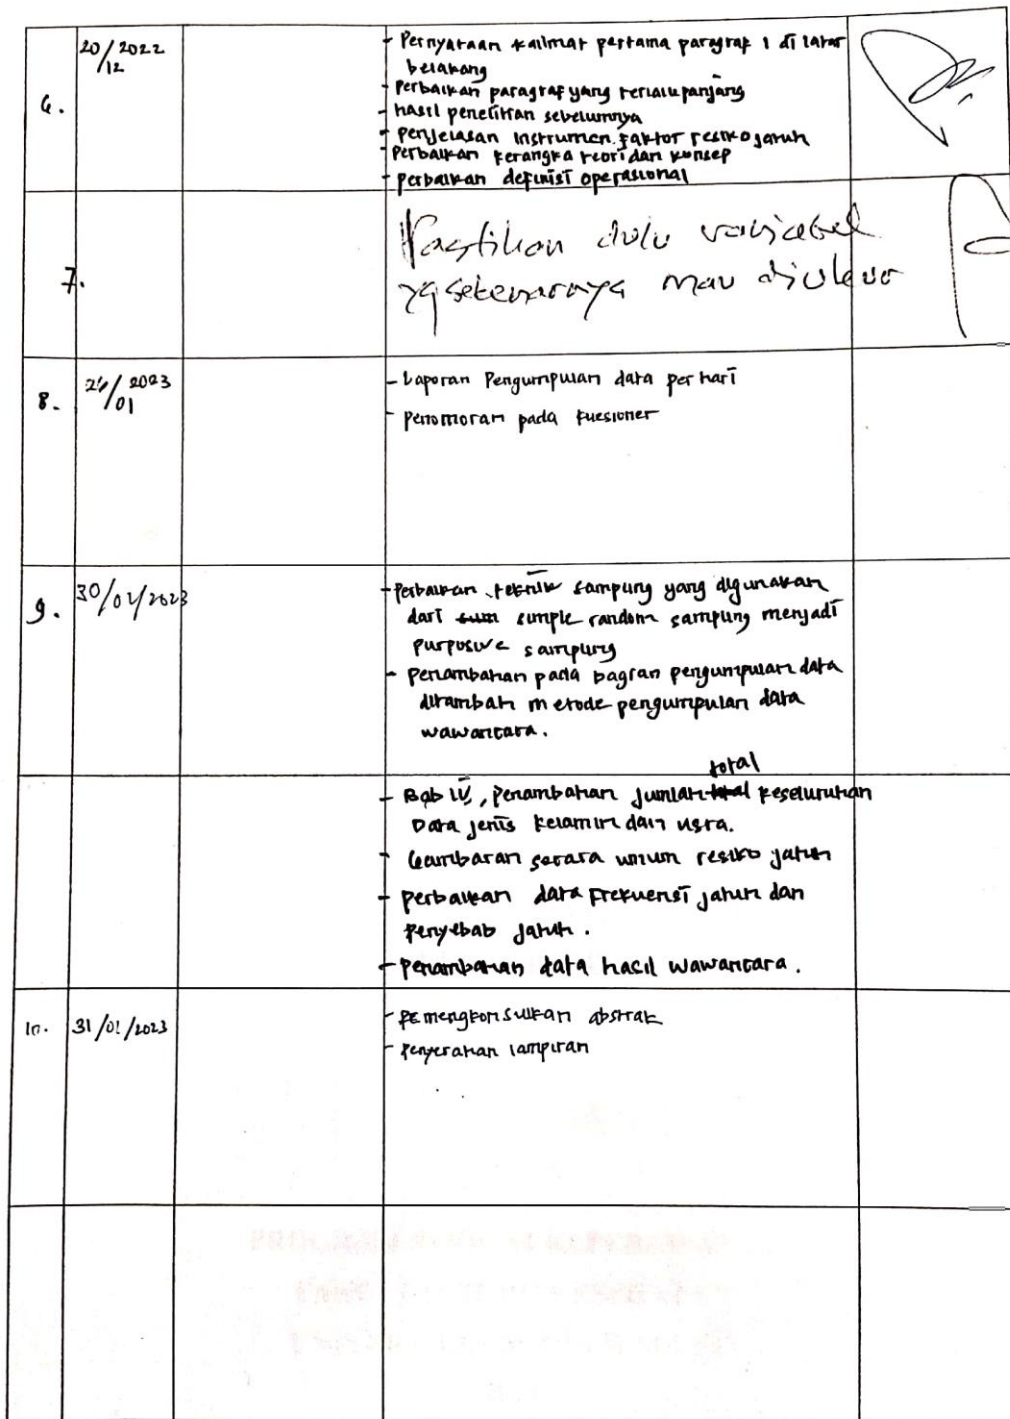 6.
20/2022
12
- Pernyataan kailmat pertama paragraf 1 di latar
belakang
- Perbaikan paragraf yang terlalu panjang
- hasil penelitian sebelumnya
- Penjelasan instrumen faktor resiko jatuh
- Perbaikan kerangka teori dan konsep
- perbaikan definisi operasional
7.
Pastikan dulu variabel
yg sebenarnya mau diukur
8.
/2023
01
- Laporan Pengumpulan data per hari
- Penomoran pada kuesioner
9.
30/01/2023
- Perbaikan teknik sampling yang digunakan
dari simple random sampling menjadi
purposive sampling
- Penambahan pada bagian pengumpulan data
ditambah metode pengumpulan data
wawancara.
- Bab IV, penambahan jumlah total keseluruhan
Data jenis kelamin dan usia.
- Gambaran secara umum resiko jatuh
- perbaikan data frekuensi jatuh dan
penyebab jatuh.
- penambahan data hasil wawancara.
10.
31/01/2023
- mengkonsulkan abstrak
- Penyerahan lampiran